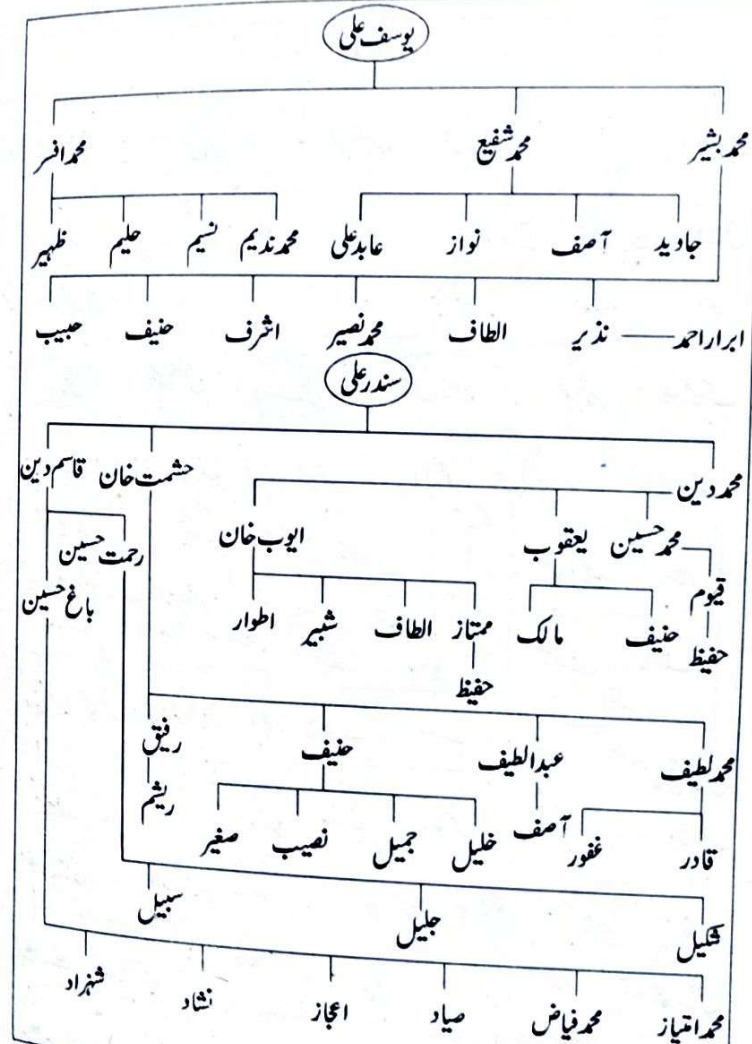 یوسف علی
محمد بشیر محمد شفیع محمد افسر
جاوید آصف نواز عابد علی محمد ندیم نسیم حلیم ظہیر
ابرار احمد نذیر الطاف محمد نصیر اشرف حنیف حبیب
سندر علی
محمد دین حشمت خان قاسم دین
محمد حسین یعقوب ایوب خان رحمت حسین
قیوم باغ حسین
حفیظ حنیف مالک ممتاز الطاف شبیر اطوار
حفیظ
محمد لطیف عبد الطیف حنیف رفیق
قادر غفور آصف خلیل جمیل نصیب صغیر ریشم
شکیل جلیل سبیل
محمد امتیاز محمد فیاض صیاد اعجاز نشاد شہزاد